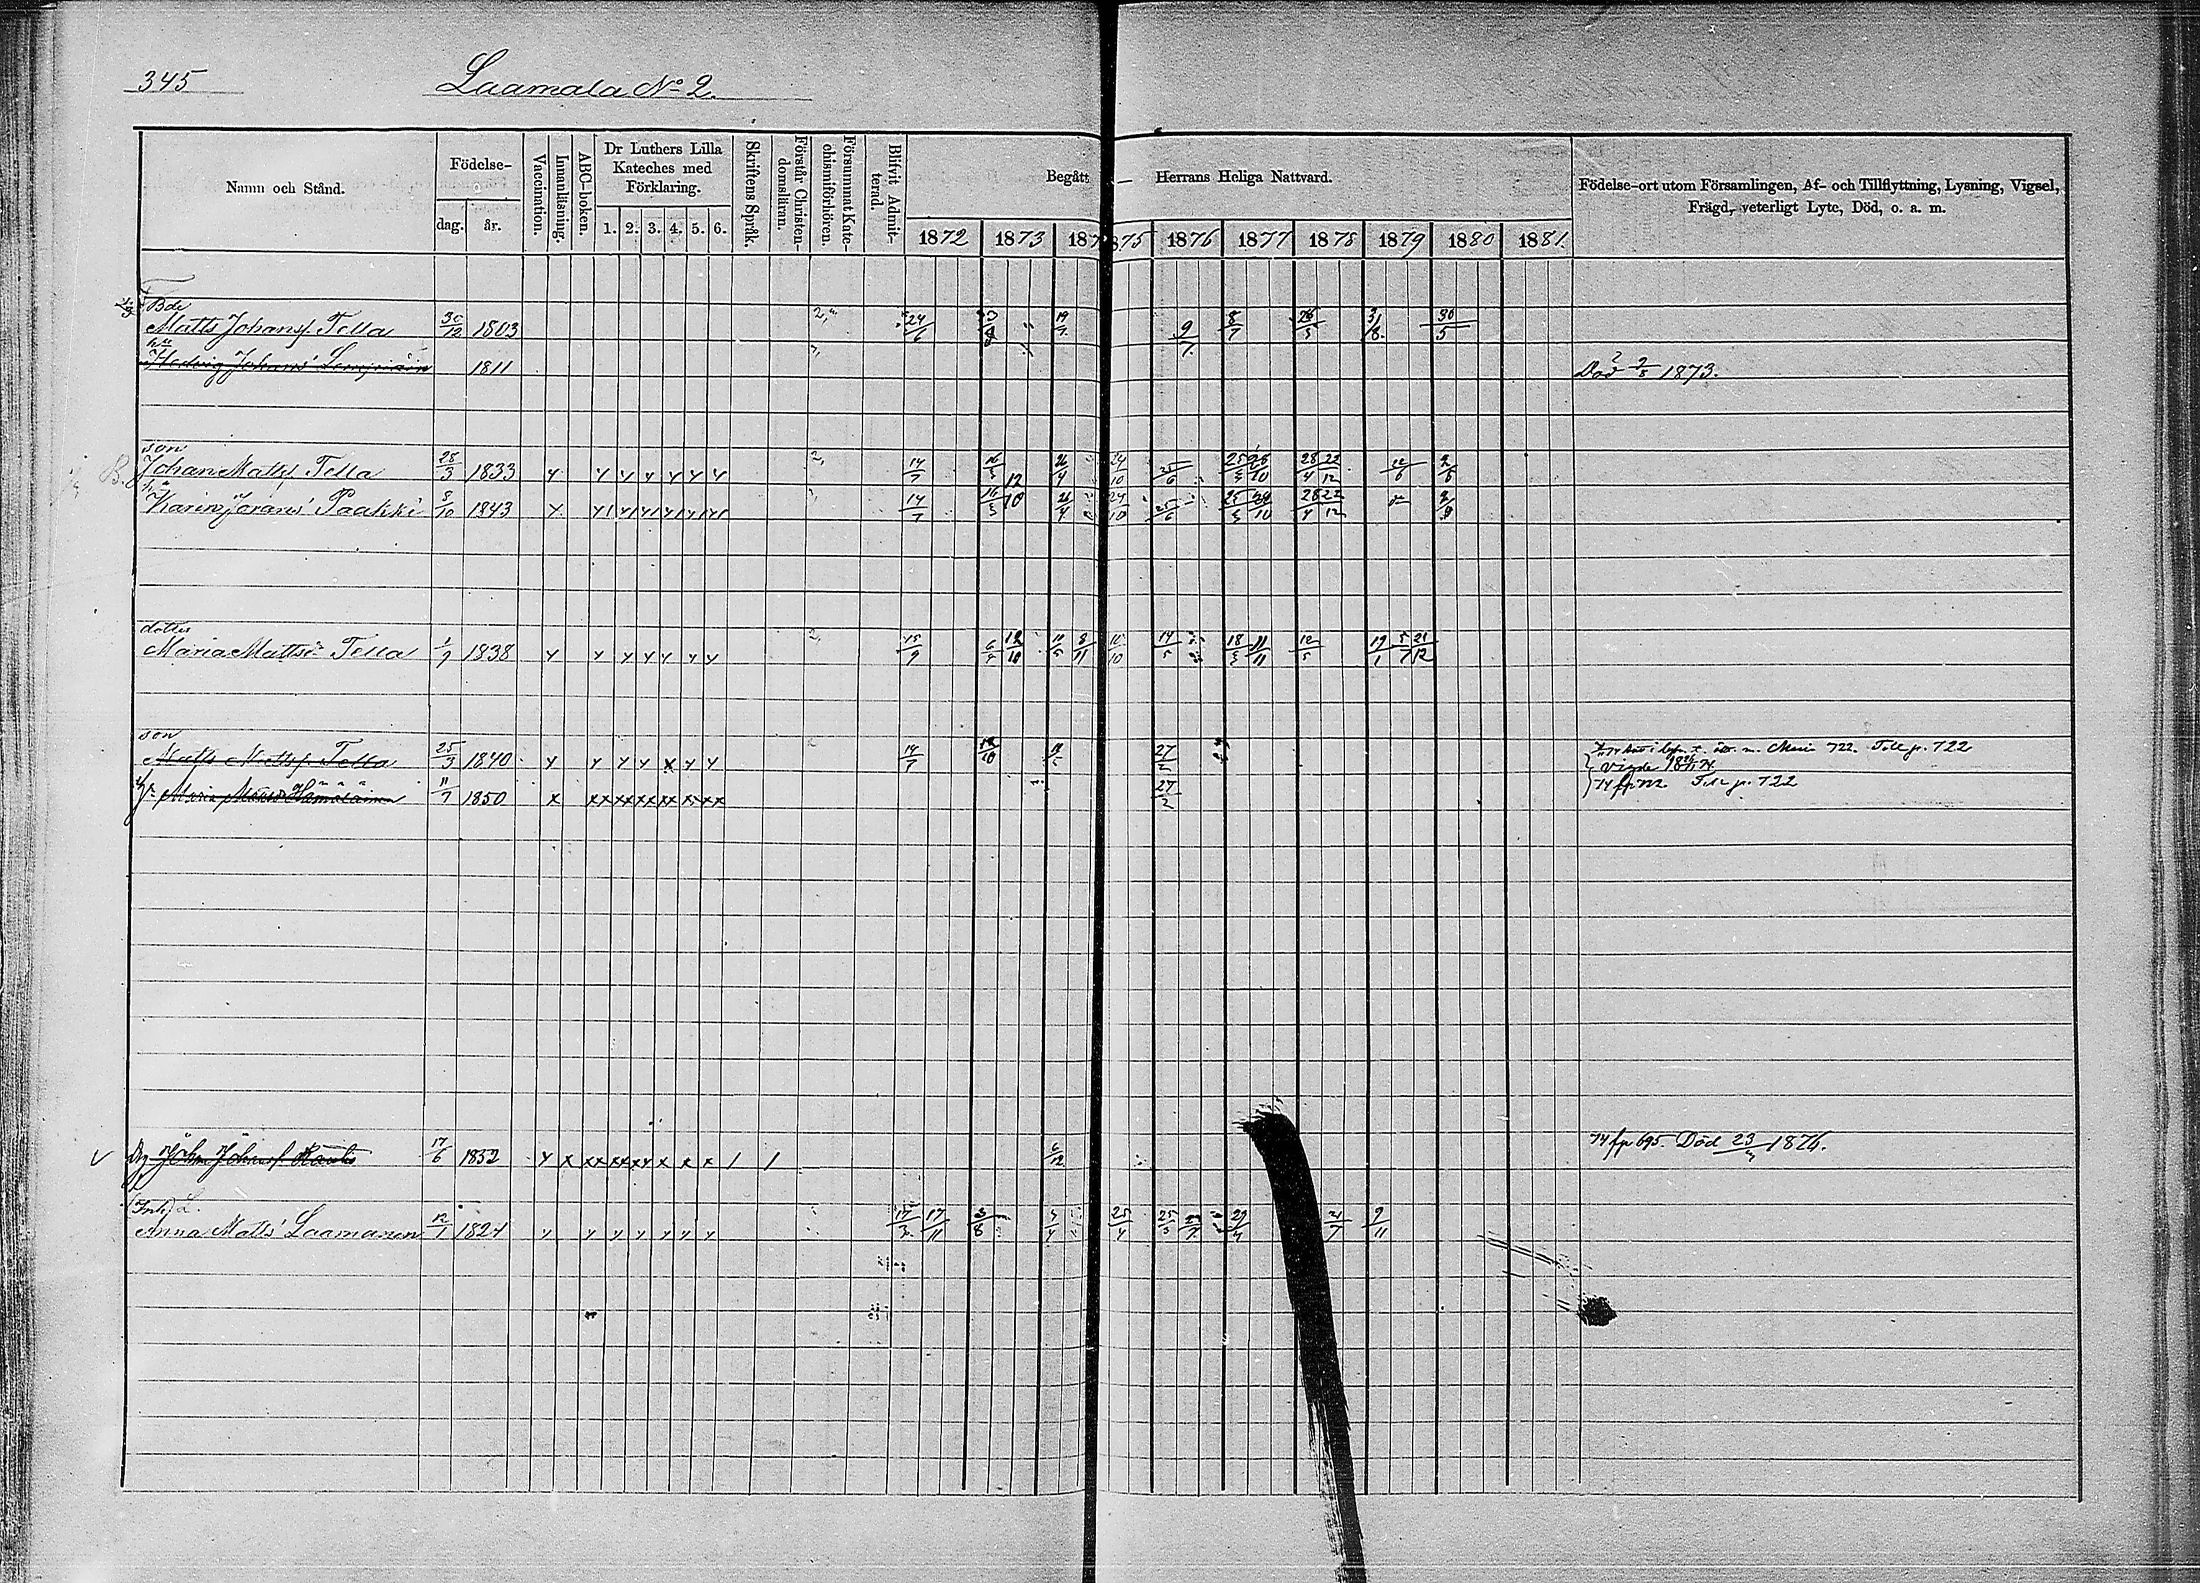 345 Laamala No 2.
Namn och Stånd. Födelse- dag. år. Vaccination. Innanläsning. ABC-boken. Dr Luthers Lilla Kateches med Förklaring. 1. 2. 3. 4. 5. 6. Skriftens Språk. Förstår Christendomsläran. Försummat Katechismiförhören. Blifvit Admitterad. Begått Herrans Heliga Nattvard. Födelse-ort utom Församlingen, Af- och Tillflyttning, Lysning, Vigsel, Frägd, veterligt Lyte, Död, o. a. m.
1872 1873 187 875 1876 1877 1878 1879 1880 1881
Bde
Matts Johansf. Tella 30/12 1803 24/6 19/7 9/7 8/7 26/5 31/8 30/5
hu
Hedvig Johans' 1811 Död 2/8 1873.
son
Johan Matsf. Tella 28/3 1833 y y y y y y y 14/7 16/5 12/10 26/4 24/10 25/6 25/3 28/10 28/4 22/12 22/6 2/5
Karin Jorans' Paakki 8/10 1843 14/7 16/5 26/4 24/10 25/6 25/3 28/10 28/4 22/12
dotter
Maria Mattsd. Tella 1/9 1838 y y y y y y y 15/9 6/4 12/10 11/5 8/11 10/10 14/5 18/3 11/11 12/5 19/1 5/7 21/12
son
Matts Mattsf. Tella 25/3 1840 y y y y x y y 14/7 12/10 27/2 Till p. 722
Maria Hämäläinen 11/7 1850 x xx xx xx xx xx xx 27/2 74 fr 722 Till p. 722
Johan Johansf. 17/6 1832 6/12 74 fr 695. Död 23/4 1876.
(Inh.) L.
Anna Matts' Laamanen 12/1 1824 y y y y y y y 17/3 17/11 3/8 25/4 25/3 29/4 21/7 9/11